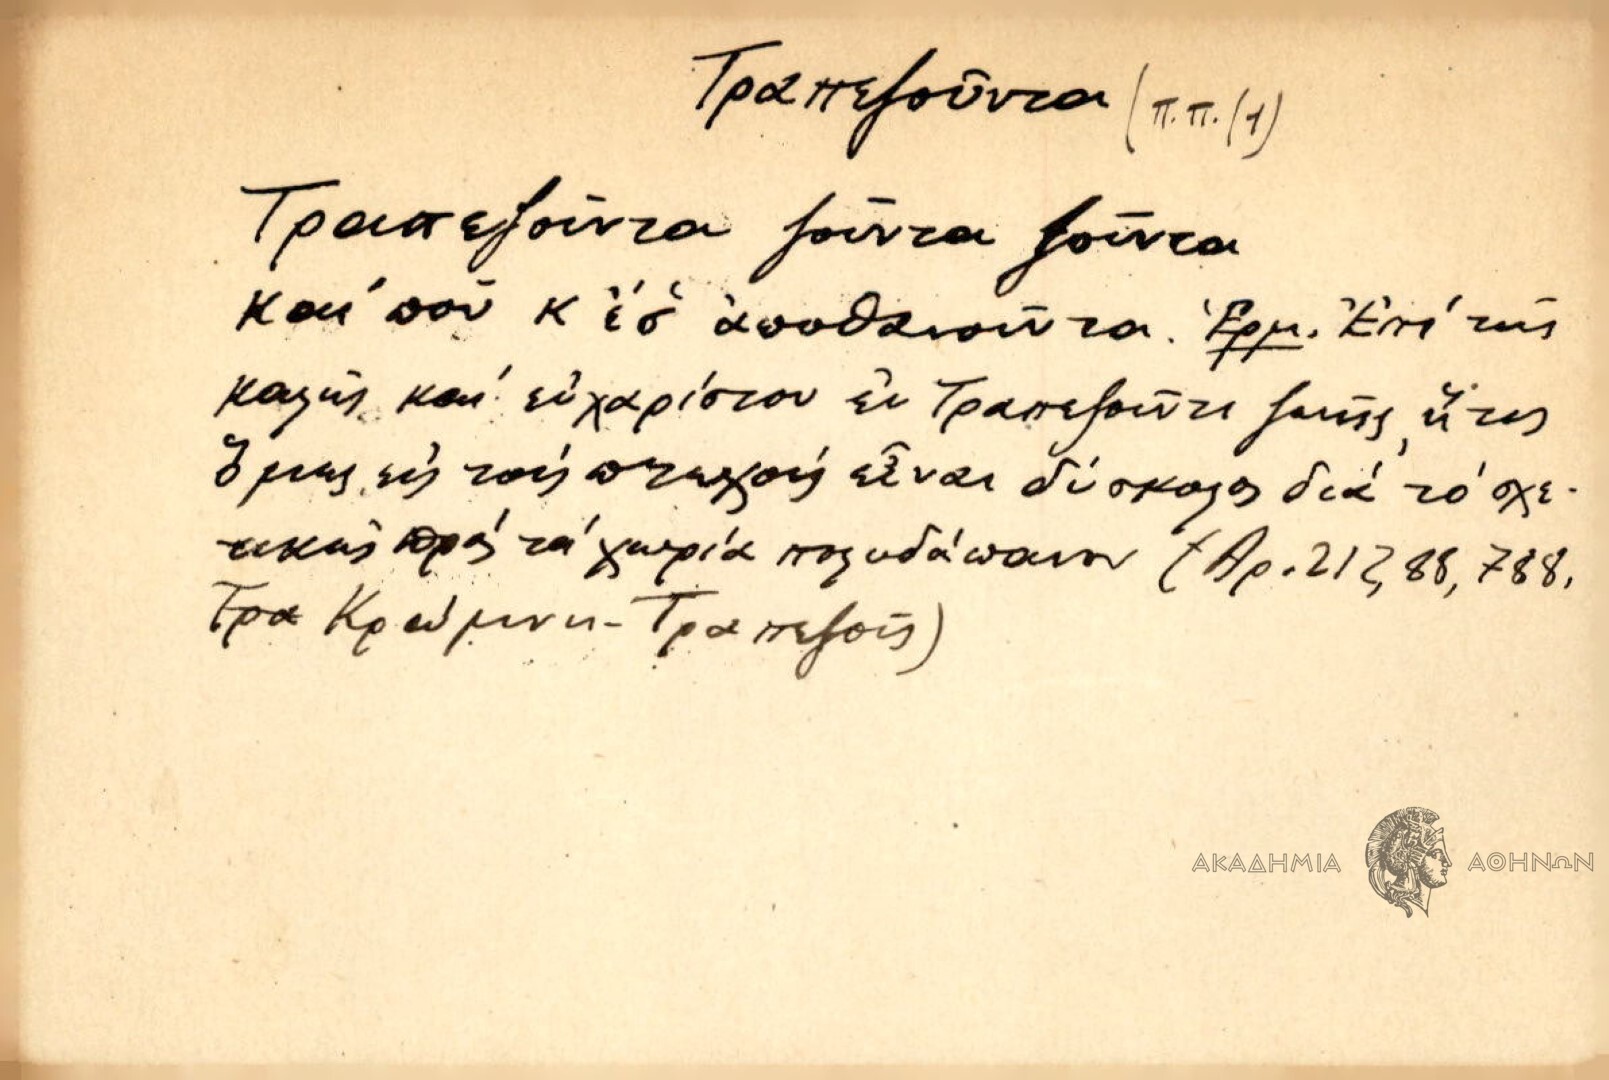 Τραπεζοῦντα (π.π. (1)
Τραπεζοῦντα ζοῦντα ζοῦντα
καὶ ποῦ κ̓ ἔσ̓ ἀποθανοῦντα. Ἑρμ. Ἐπὶ τῆς
καλῆς καὶ εὐχαρίστου ἐν Τραπεζοῦντι ζωῆς, ἥτις
ὅμως εἰς τοὺς πτωχοὺς εἶναι δύσκολος διὰ τὸ σχε-
τικῶς πρὸς τὰ χωρία πολυδάπανον (Ἀρ. 212, 88, 788,
Τρα Κρώμνη - Τραπεζοῦς)
ΑΚΑΔΗΜΙΑ ΑΘΗΝΩΝ